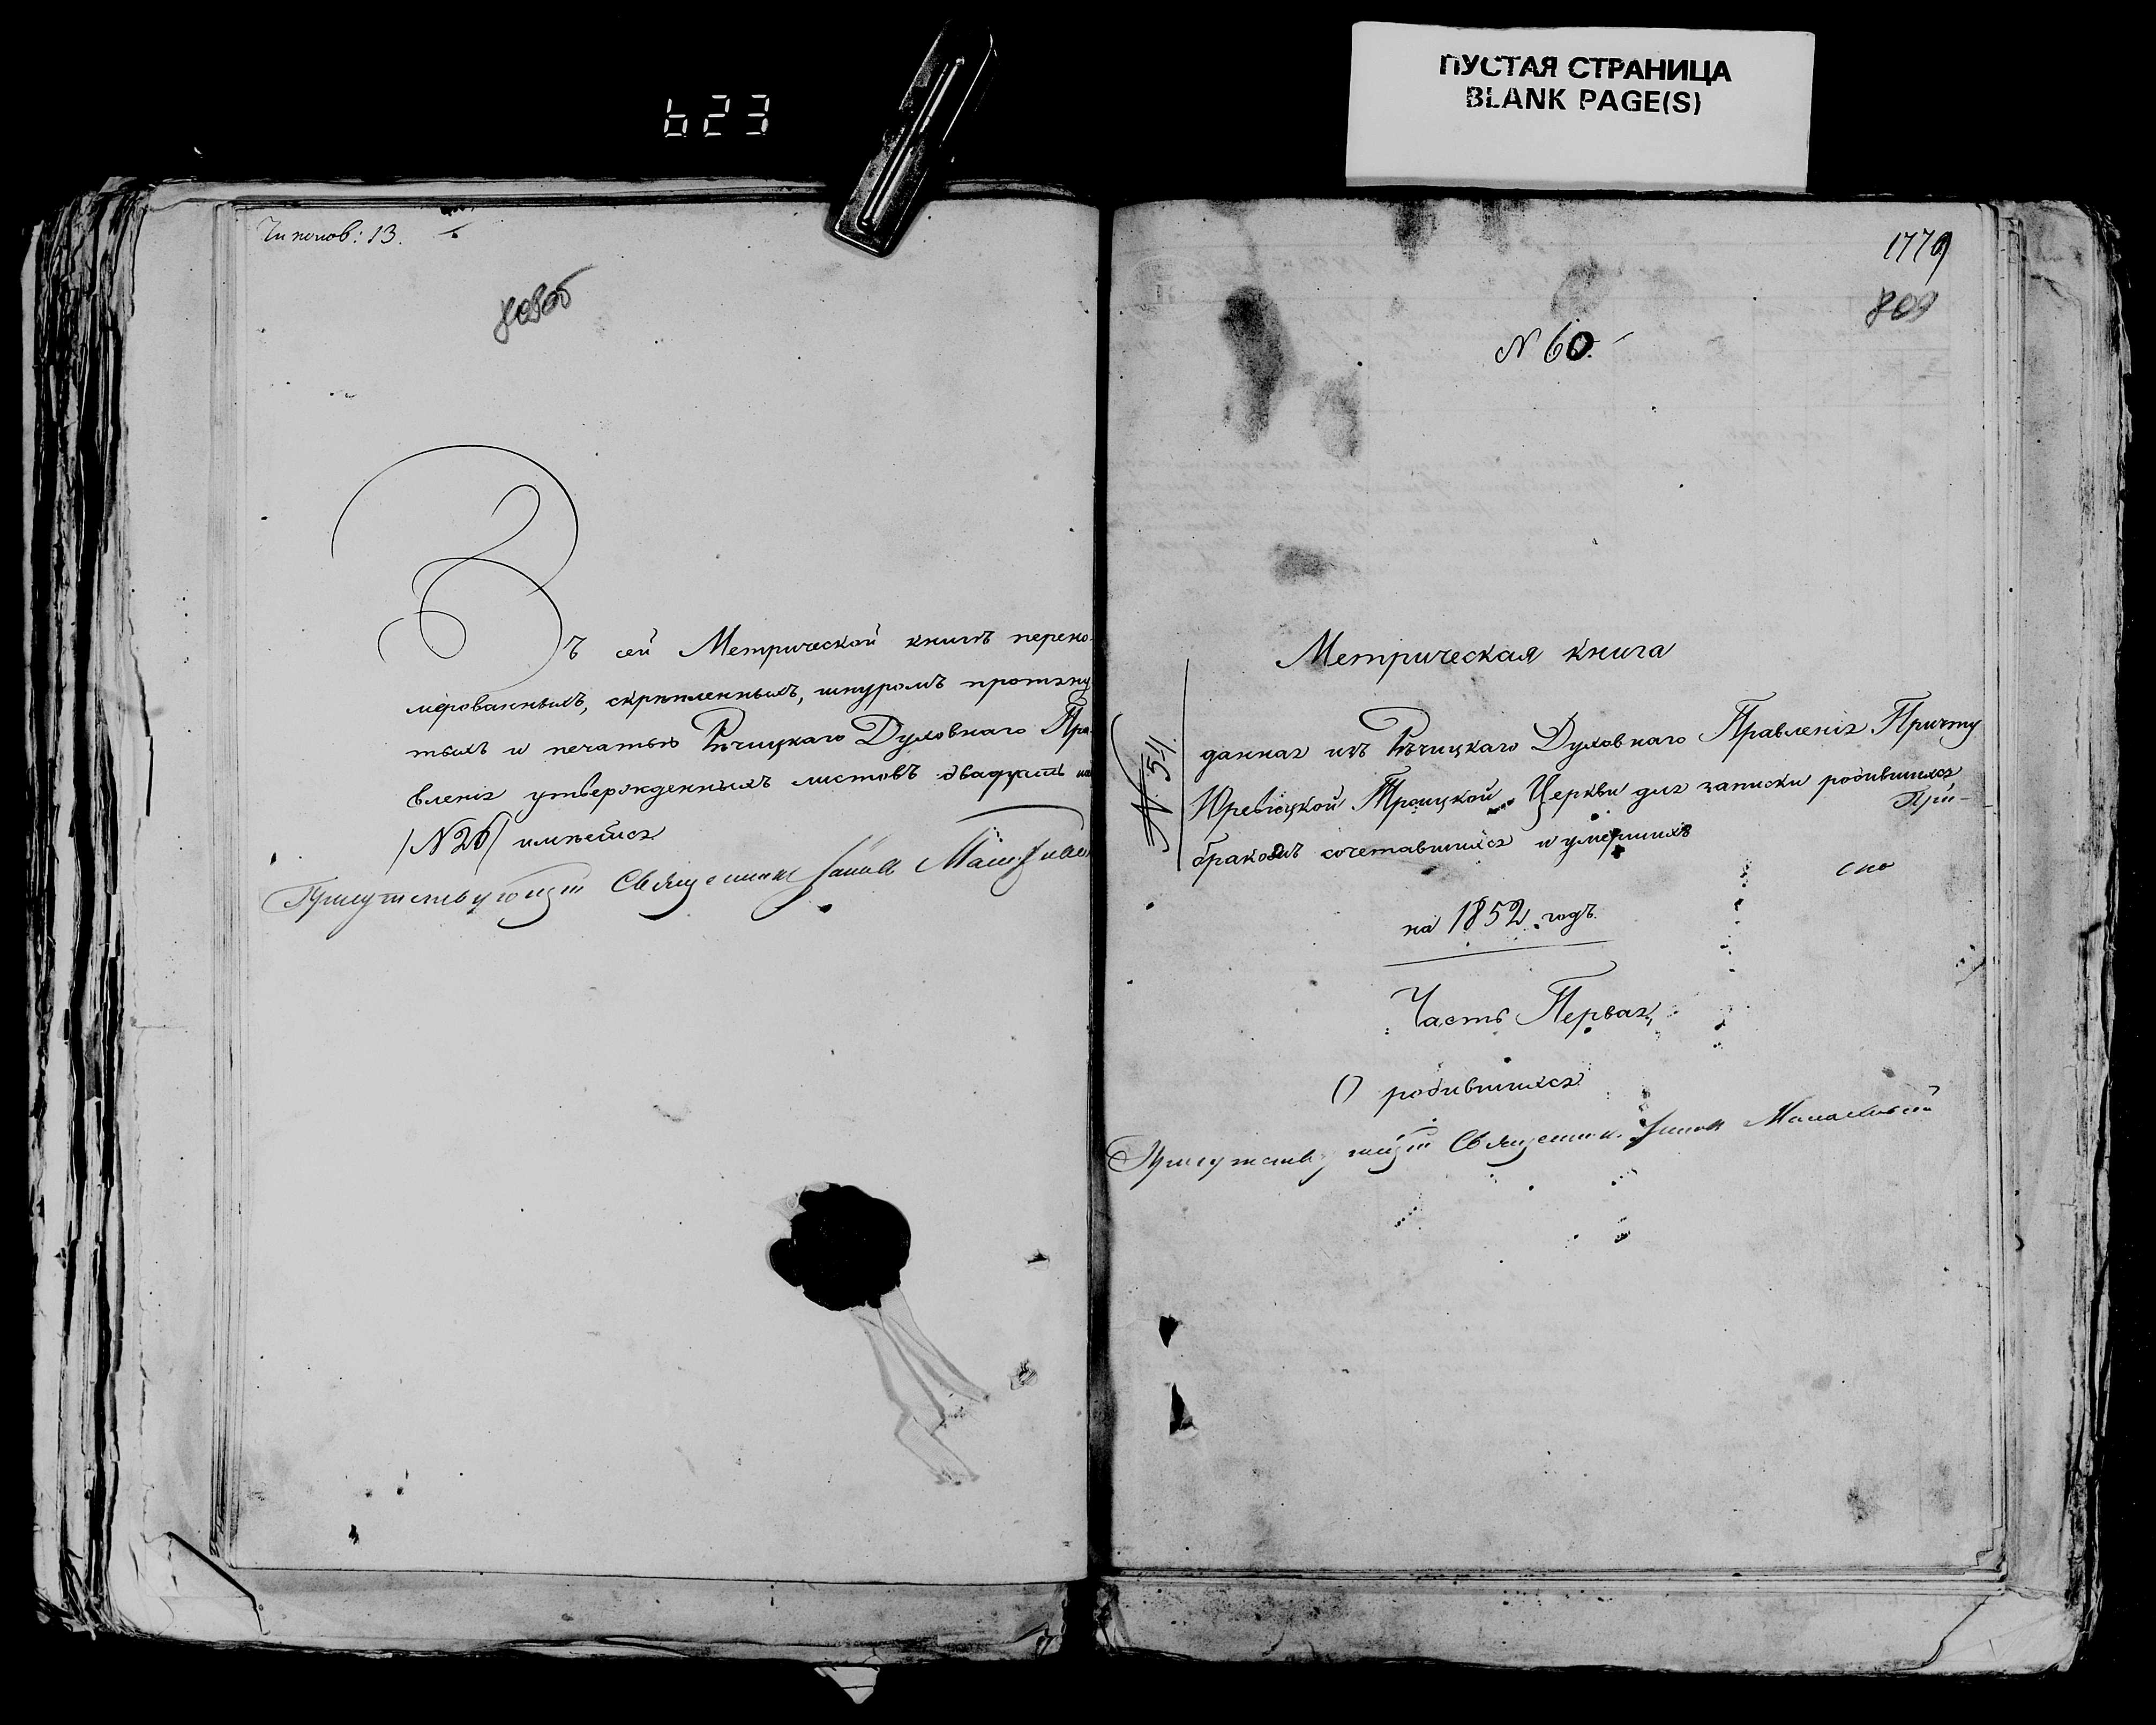 623
ПУСТАЯ СТРАНИЦА
BLANK PAGE(S)
13.
Въ сей Метрической книгѣ перено-
мѣрованныхъ, скрѣпленныхъ, шнуромъ протяну
тыхъ и печатью Рѣчицкаго Духовнаго Пра-
вленія утвержденныхъ листовъ двадцать
/N 26/ имѣется
Присутствующій Священникъ
1779
809
N 60.
Метрическая книга
N. 511.
данная изъ Рѣчицкаго Духовнаго Правленія Причту
Юревицкой Троицкой Церкви для записки родившихся
бракомъ сочетавшихся и умершихъ
на 1852 годъ.
Часть Первая,
О родившихся
Присутствующій Священникъ